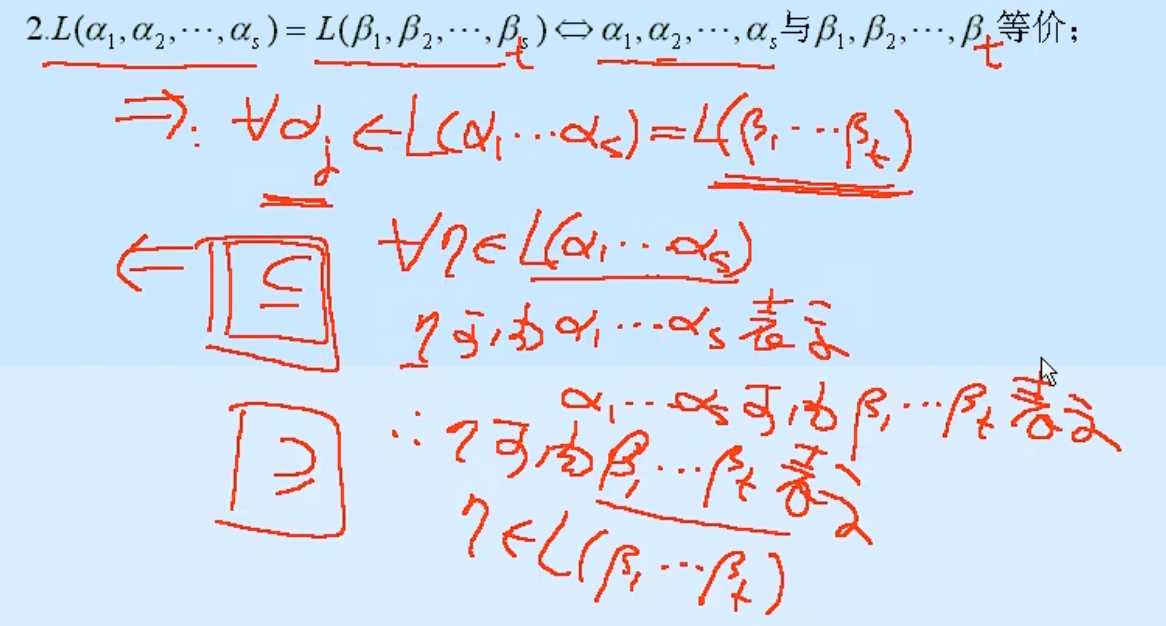 2.L(α₁,α₂,⋯,αₛ)=L(β₁,β₂,⋯,βₜ)⇔α₁,α₂,⋯,αₛ与β₁,β₂,⋯,βₜ等价;
⇒: ∀αⱼ∈L(α₁⋯αₛ)=L(β₁⋯βₜ)
⇐ ⊆ ∀η∈L(α₁⋯αₛ)
η可由α₁⋯αₛ表示
α₁⋯αₛ可由β₁⋯βₜ表示
⊇ ∴η可由β₁⋯βₜ表示
η∈L(β₁⋯βₜ)